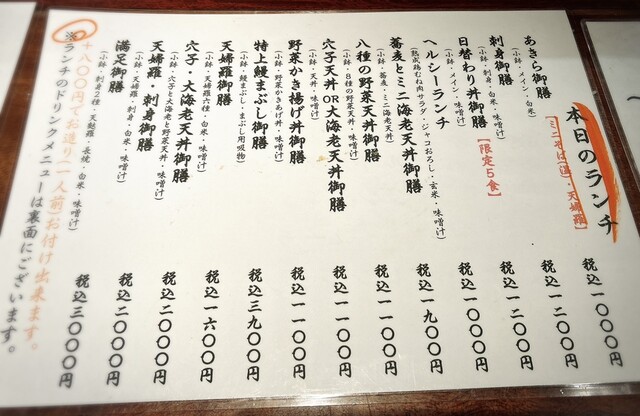 本日のランチ
【ミニそば(温)・天婦羅】
あきら御膳 税込一〇〇〇円
(小鉢・メイン・白米・味噌汁)
刺身御膳 税込一二〇〇円
(小鉢・刺身・白米・味噌汁)
日替わり丼御膳【限定5食】 税込一二〇〇円
(小鉢・メイン・味噌汁)
ヘルシーランチ 税込一〇〇〇円
(熟成鶏むね肉サラダ・ジャコおろし・玄米・味噌汁)
蕎麦とミニ海老天丼御膳 税込一九〇〇円
(小鉢・蕎麦・ミニ海老天丼)
八種の野菜天丼御膳 税込一一〇〇円
(小鉢・8種の野菜天丼・味噌汁)
穴子天丼OR大海老天丼御膳 税込一一〇〇円
(小鉢・天丼・味噌汁)
野菜かき揚げ丼御膳 税込一一〇〇円
(小鉢・野菜かきあげ丼・味噌汁)
特上鰻まぶし御膳 税込三九〇〇円
(小鉢・鰻まぶし・まぶし用吸物)
天婦羅御膳 税込一六〇〇円
(小鉢・天婦羅六種・白米・味噌汁)
穴子・大海老天丼御膳 税込二〇〇〇円
(小鉢・穴子と大海老と野菜天丼・味噌汁)
天婦羅・刺身御膳 税込二〇〇〇円
(小鉢・天婦羅・刺身・白米・味噌汁)
満足御膳 税込三〇〇〇円
(小鉢・刺身2種・天麩羅・長焼・白米・味噌汁)
+八〇〇円でお造り(一人前)お付け出来ます。
※ランチのドリンクメニューは裏面にございます。